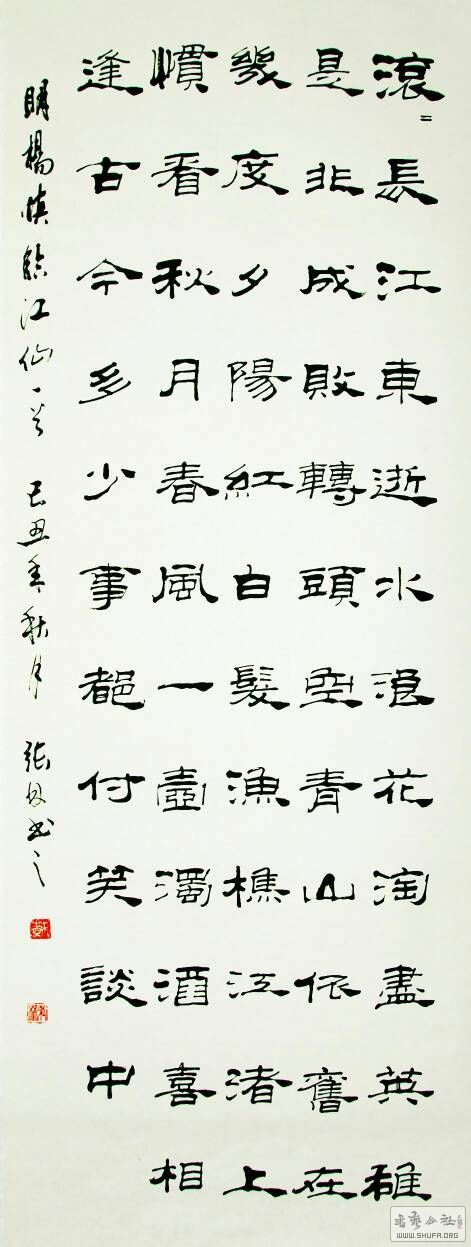 滾〻長江東逝水浪花淘盡英雄
是非成敗轉頭空青山依舊在
幾度夕陽紅白髮漁樵江渚上
慣看秋月春風一壺濁酒喜相
逢古今多少事都付笑談中
明楊慎臨江仙一首 己丑年秋月 張書之
书艺公社
WWW.SHUFA.ORG